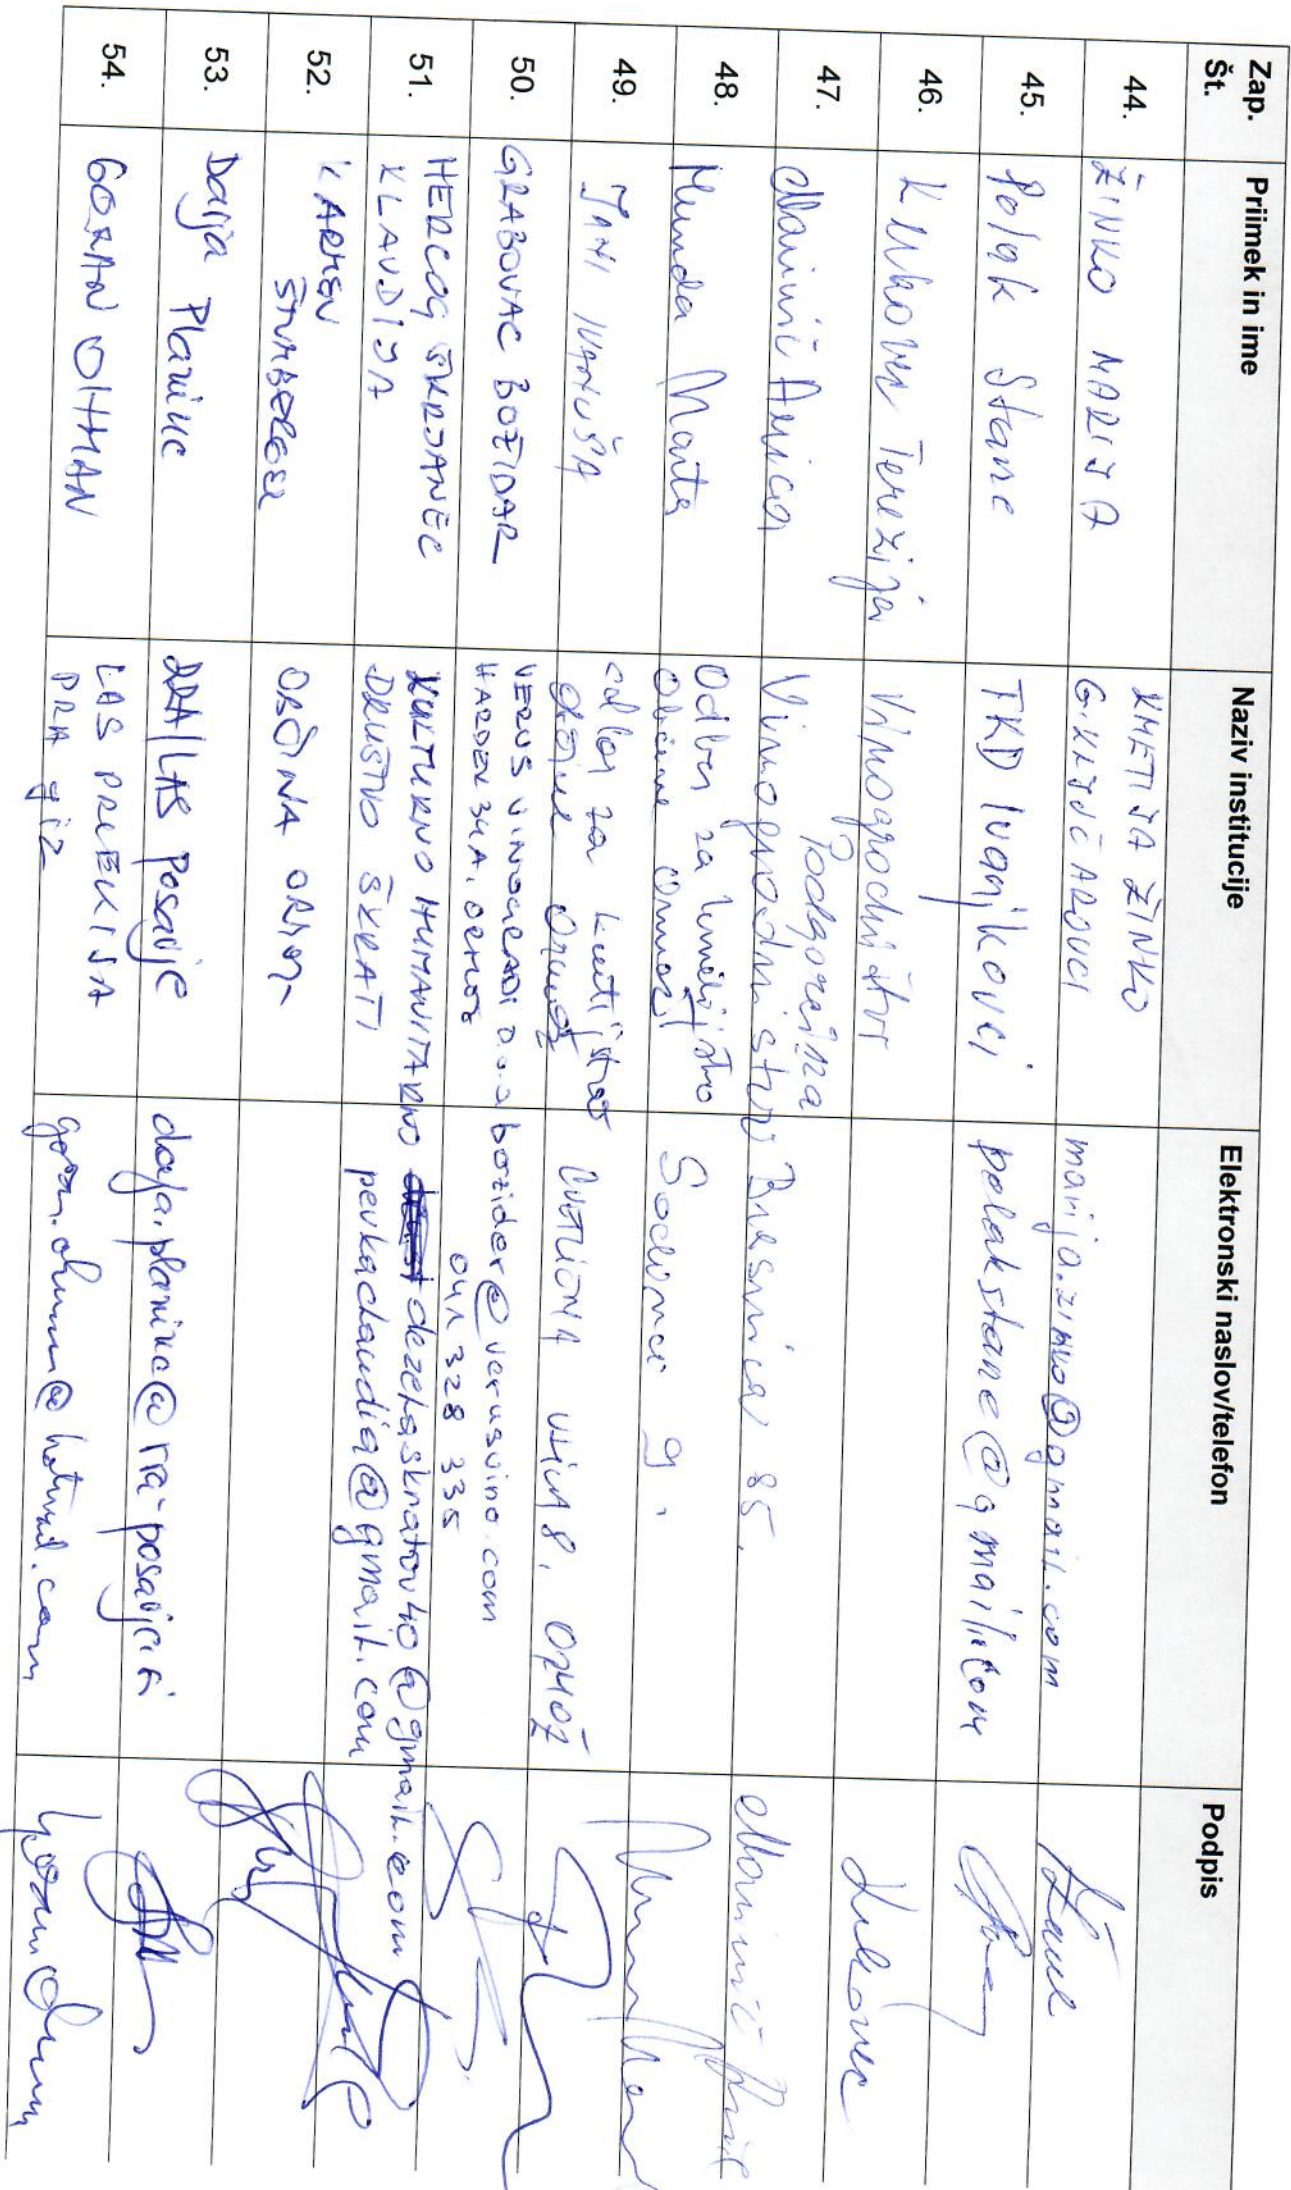 Zap. Št. Priimek in ime Naziv institucije Elektronski naslov/telefon Podpis
44. ŽINKO MARIJA KMETIJA ŽINKO marija.zinko@gmail.com
45. Polak Stane TKD Ivanjkovci polakstane@gmail.com
46. Terezija Vinogradništvo
47. Marinič Anica Vinogradništvo Podgorelna Bresnica 85.
48. Munda Marta Odbor za kmetijstvo Občine Ormož Sodinci 9.
49. JANI IVANUŠA odbor za kmetijstvo občine Ormož ULICA 8, ORMOŽ
50. GRABOVAC BOŽIDAR VERUS VINOGRADI D.O.O. HARDEK 34A, ORMOŽ bozidar@verusvino.com
041 328 335
51. HERCOG ŠKRJANEC KLAVDIJA KULTURNO HUMANITARNO DRUŠTVO ŠKRATI dezelaskratov40@gmail.com
pevkaclaudia@gmail.com
52. KARMEN ŠTUMBERGER OBČINA ORMOŽ
53. Darja Planinc RRA/LAS Posavje darja.planinc@rra-posavje.si
54. GORAN OHMAN LAS PRLEKIJA PRA giz goran.ohman@hotmail.com